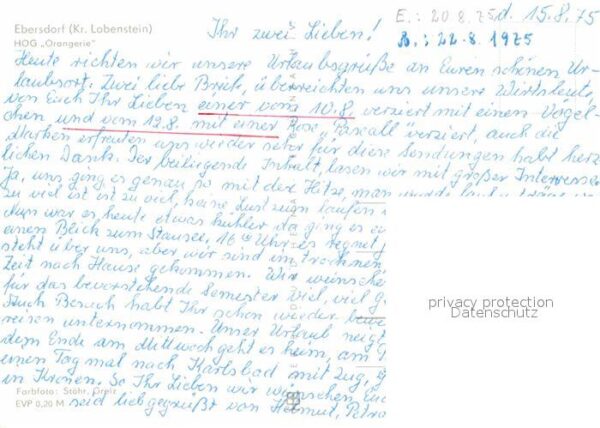 Ebersdorf (Kr. Lobenstein)
HOG „Orangerie"
E.: 20.8.75
d. 15.8.75
B.: 22.8.1975
Ihr zwei Lieben!
Heute richten wir unsere Urlaubsgrüße an Euren schönen Ur-
laubsort. Zwei liebe Briefe, überreichten uns unsere Wirtsleute,
von Euch Ihr Lieben einer vom 10.8. verziert mit einen Vögel-
chen und vom 12.8. mit einer Rose, „Pascall" verziert, auch die
Marken erfreuten uns wieder sehr für diese Sendungen habt herz
lichen Dank. Der beiliegende Inhalt, lasen wir mit großer Interresse
Ja, uns ging es genau so mit der Hitze, man wurde
zu viel ist ist zu viel, keine Lust zum laufen
Nun war es heute etwas kühler da ging es
einen Blick zum Stausee, 16 Uhr es regnet
steht über uns, aber wir sind im trocknen
Zeit nach Hause gekommen. Wir wünschen
für das bevorstehende Semester viel, viel
Auch Besuch habt Ihr schon wieder
reisen unternommen. Unser Urlaub neigt
dem Ende am Mittwoch geht es heim, am
einen Tag mal nach Karlsbad mit Zug,
in Kronen. So Ihr Lieben wir wünschen Euch
seid lieb gegrüßt von Helmut, Petra
Farbfoto: Stöhr, Greiz
EVP 0,20 M
privacy protection
Datenschutz